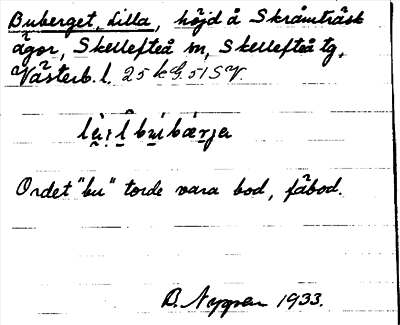 Buberget, Lilla, höjd å Skråmträsk
ägor, Skellefteå sn, Skellefteå tg,
Västerb. l. 25 k G. 51 SV.
Ordet "bu" torde vara bod, fäbod.
B. Nygren 1933.